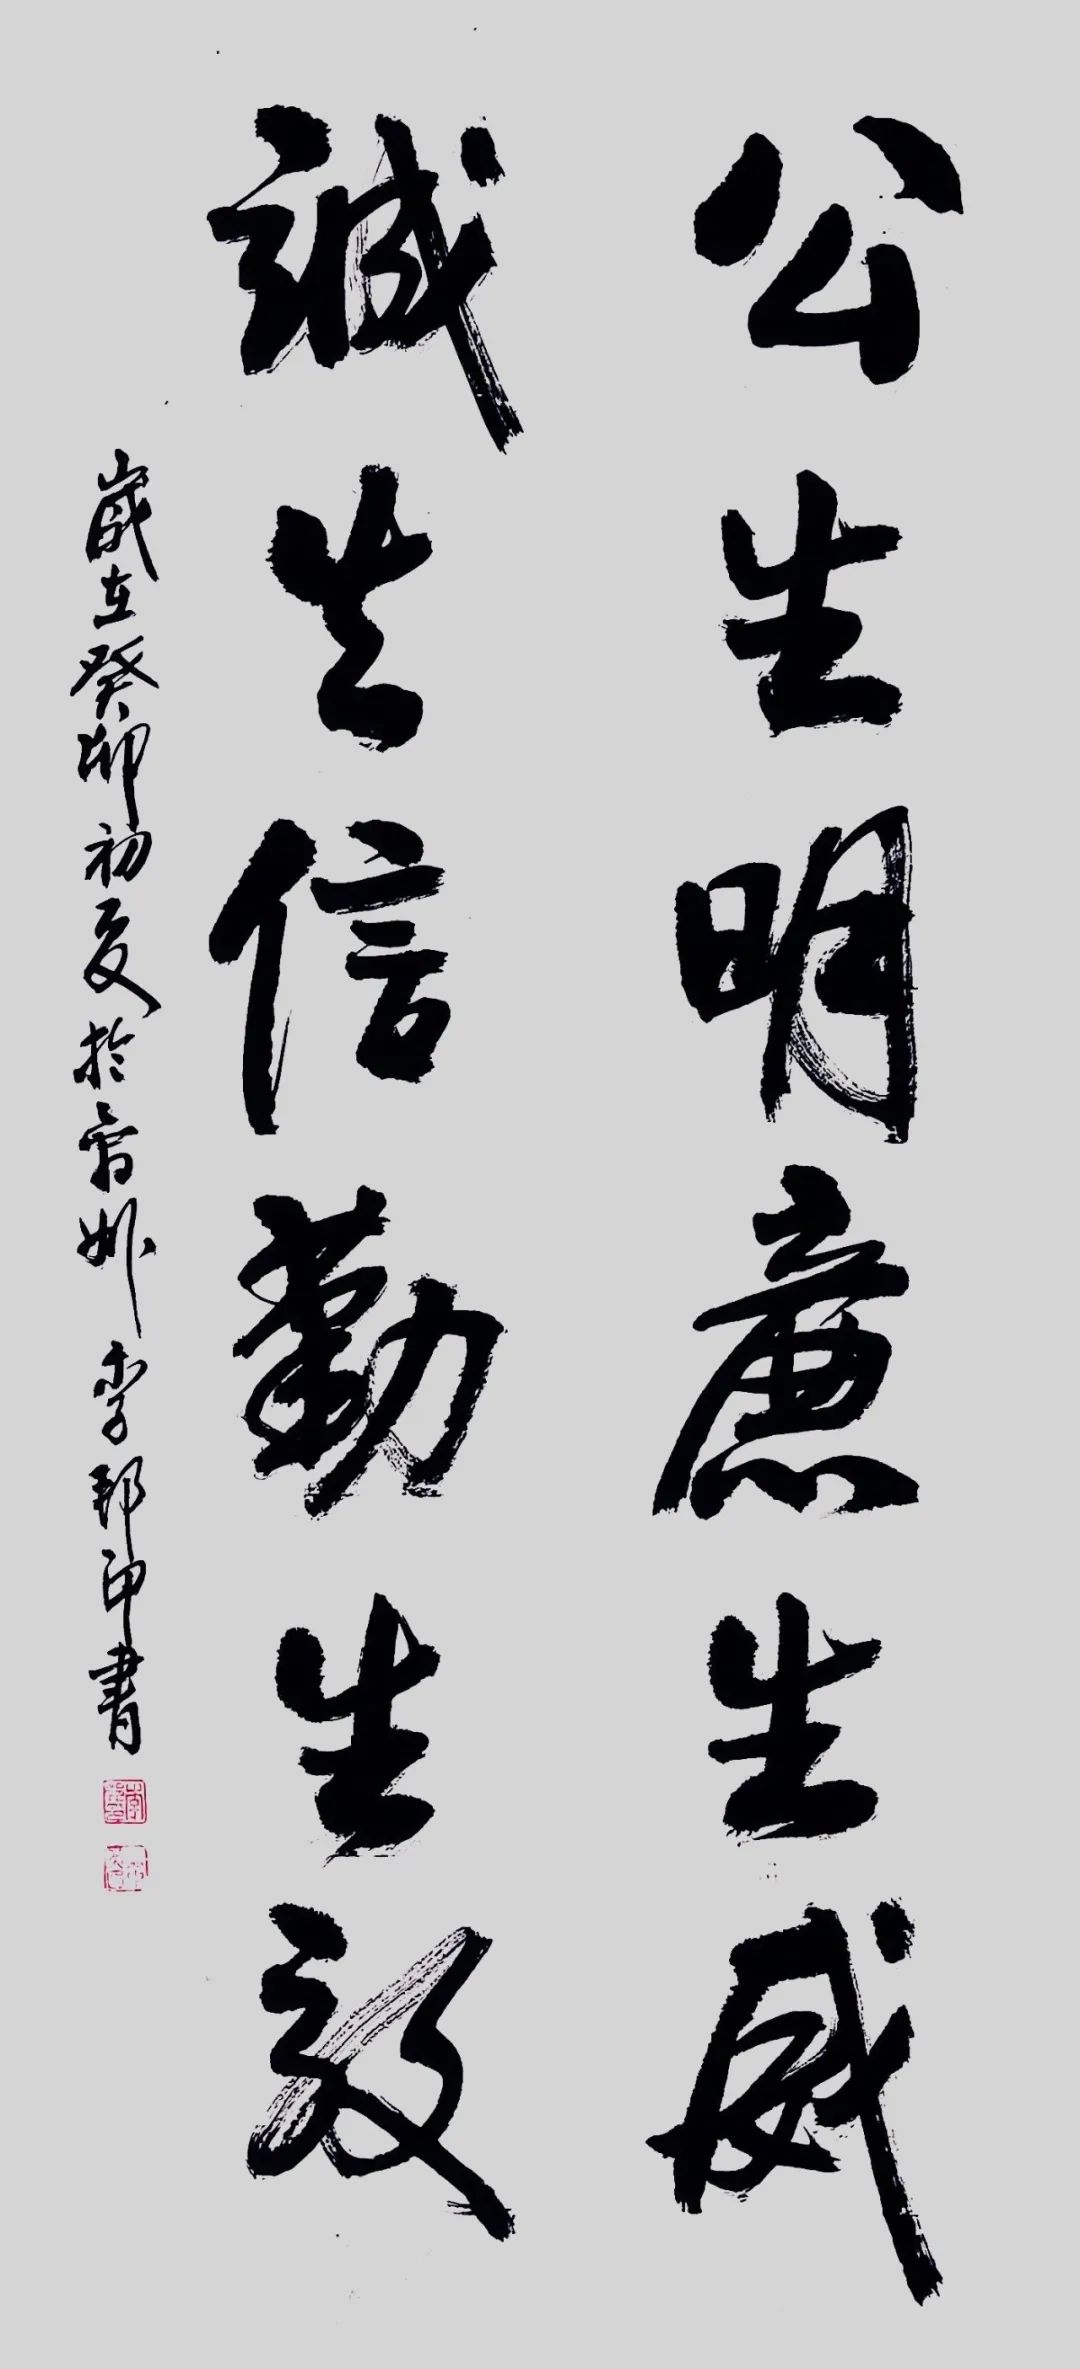 公生明廉生威
誠生信勤生效
歲在癸卯初夏於州李邦印書